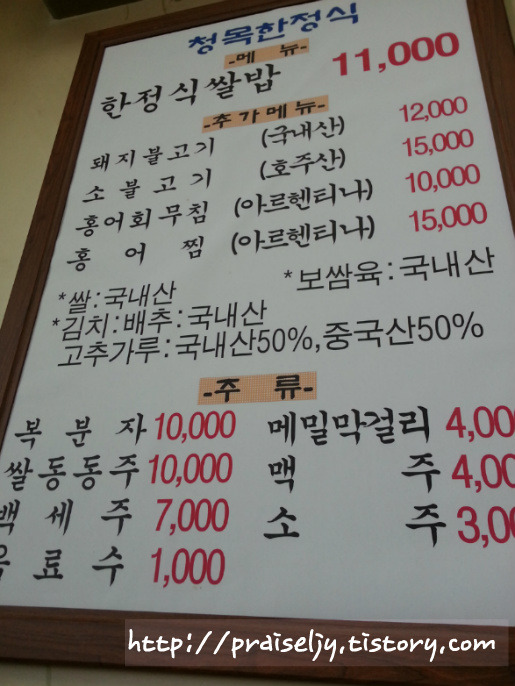 청목한정식
-메 뉴-
한정식쌀밥 11,000
-추가메뉴-
돼지불고기 (국내산) 12,000
소불고기 (호주산) 15,000
홍어회무침 (아르헨티나) 10,000
홍어찜 (아르헨티나) 15,000
*쌀:국내산 *보쌈육:국내산
*김치:배추:국내산
고추가루:국내산50%,중국산50%
-주 류-
복분자 10,000 메밀막걸리 4,000
쌀동동주 10,000 맥주 4,00
백세주 7,000 소주 3,00
음료수 1,000
http://praiseljy.tistory.com/